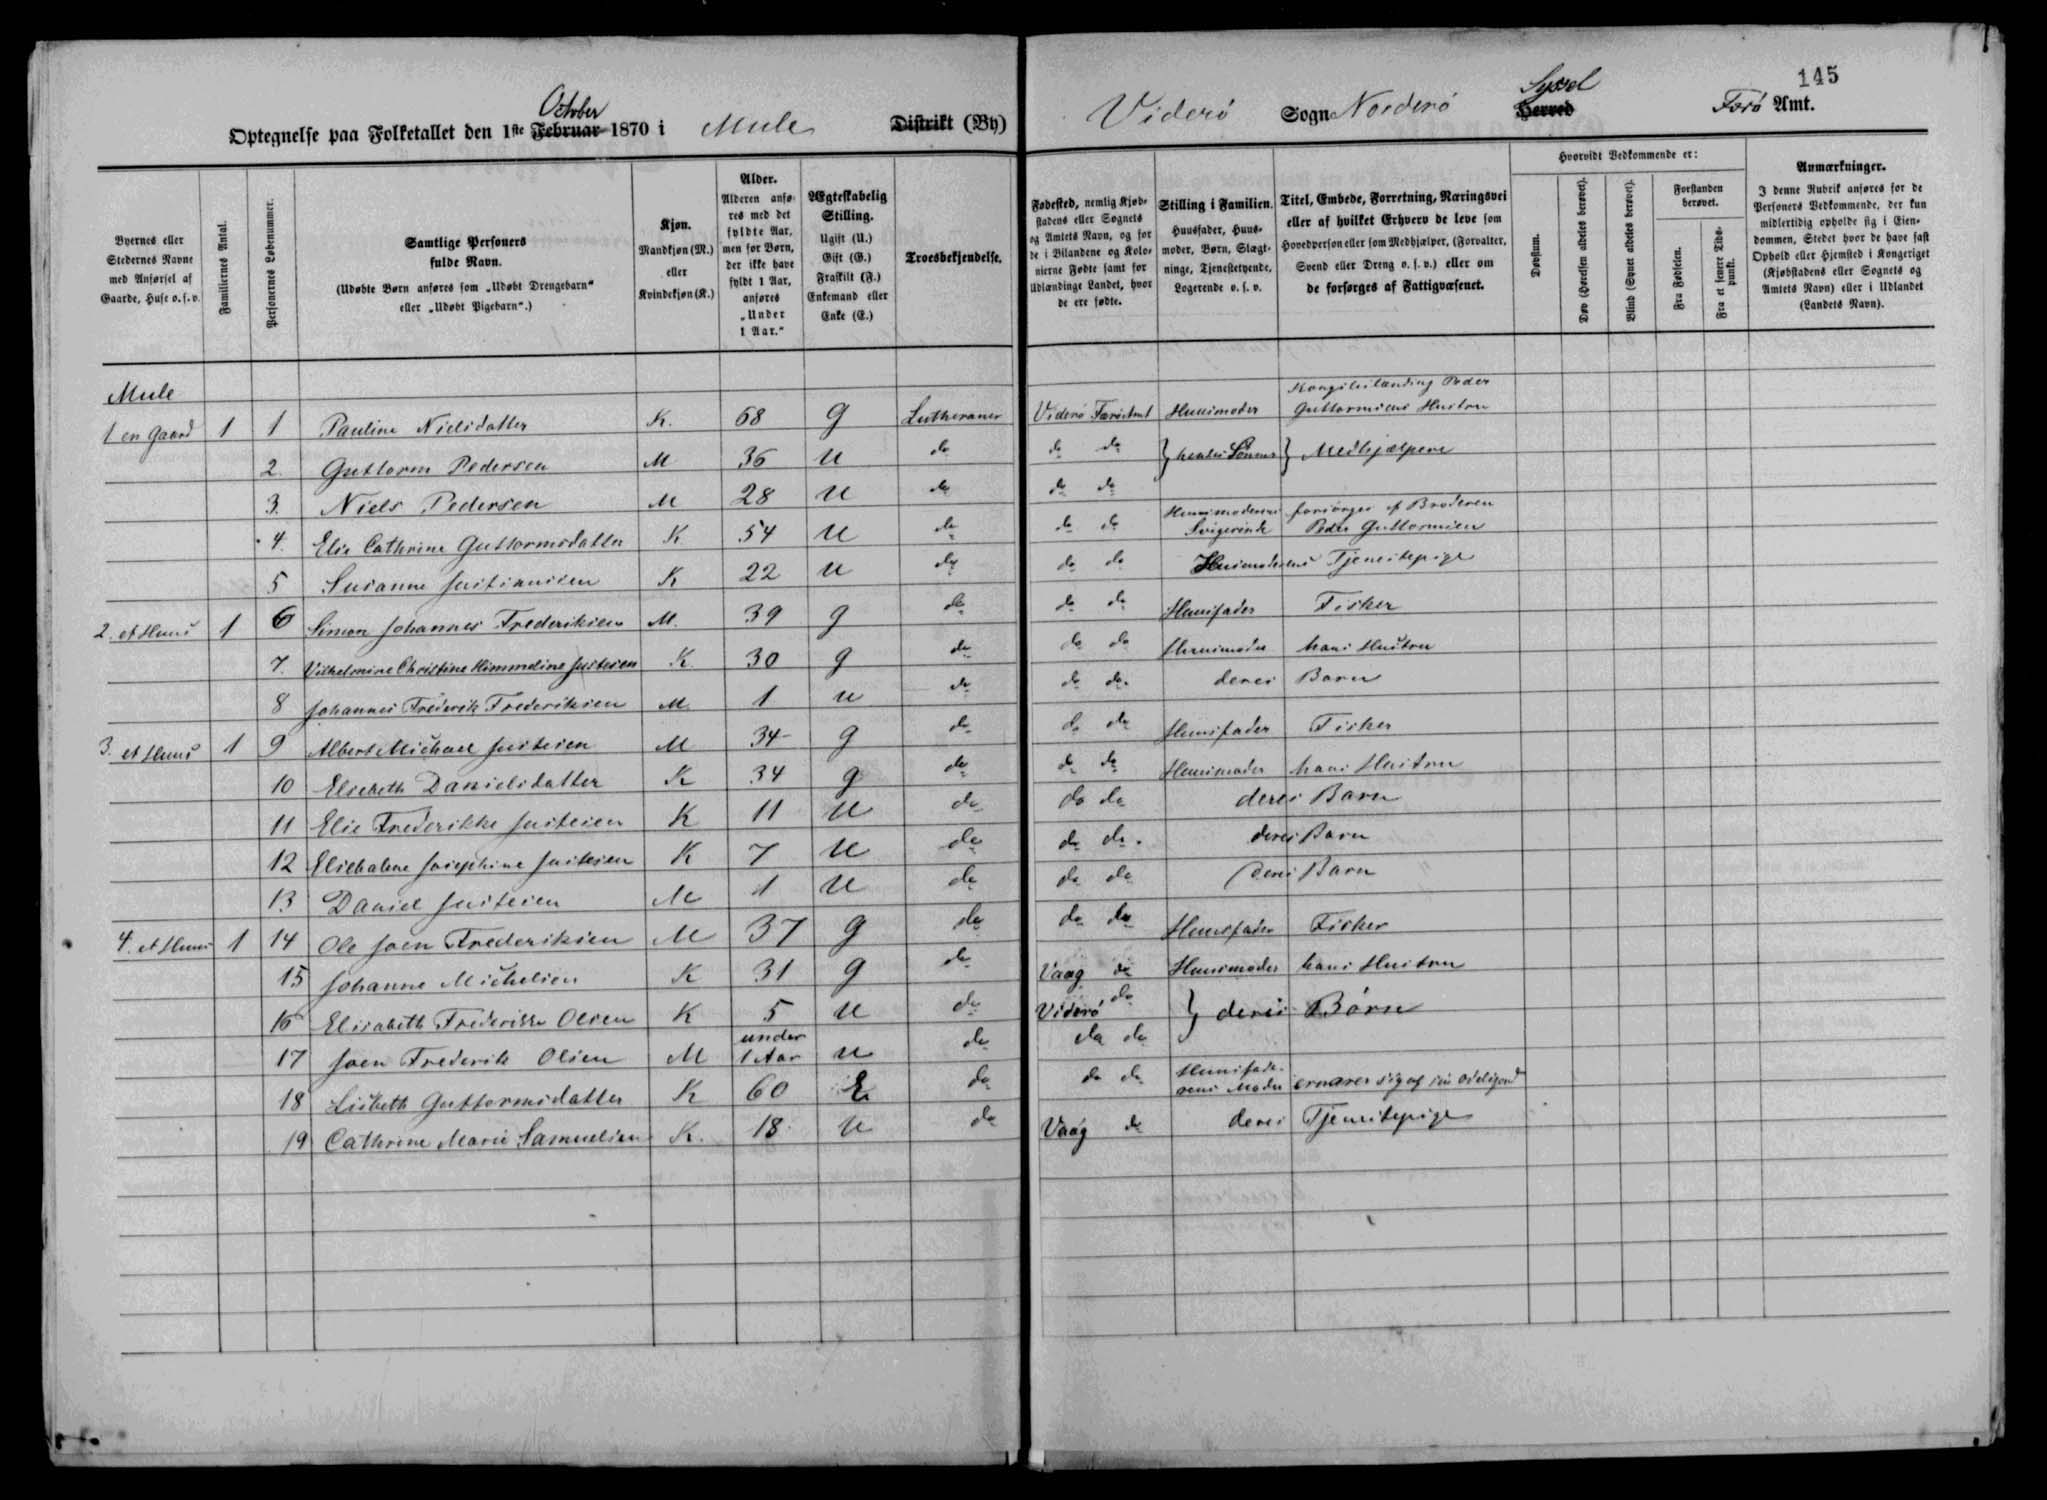 145
October
Optegnelse paa Folketallet den 1ste Februar 1870 i Mule Distrikt (By)
Viderø Sogn Norderø Herred Syssel Færø Amt.
Byernes eller Stedernes Navne med Anførsel af Gaarde, Huse o. s. v.
Familiernes Antal.
Personernes Løbenummer.
Samtlige Personers fulde Navn.
(Udøbte Børn anføres som „Udøbt Drengebarn" eller „Udøbt Pigebarn".)
Kjøn.
Mandkjøn (M.) eller Kvindekjøn (K.)
Alder.
Alderen anføres med det fyldte Aar, men for Børn, der ikke have fyldt 1 Aar, anføres „Under 1 Aar."
Ægteskabelig Stilling.
Ugift (U.) Gift (G.) Fraskilt (F.) Enkemand eller Enke (E.)
Troesbekjendelse.
Fødested, nemlig Kjøbstadens eller Sognets og Amtets Navn, og for de i Bilandene og Kolonierne Fødte samt for Udlændinge Landet, hvor de ere fødte.
Stilling i Familien.
Huusfader, Huusmoder, Børn, Slægtninge, Tjenestetyende, Logerende o. s. v.
Titel, Embede, Forretning, Næringsvei eller af hvilket Erhverv de leve som Hovedperson eller som Medhjælper, (Forvalter, Svend eller Dreng o. s. v.) eller om de forsørges af Fattigvæsenet.
Hvorvidt Vedkommende er:
Døvstum.
Døv (Hørelsen aldeles berøvet).
Blind (Synet aldeles berøvet).
Forstanden berøvet.
Fra Fødselen.
Fra et senere Tidspunkt.
Anmærkninger.
I denne Rubrik anføres for de Personers Vedkommende, der kun midlertidig opholde sig i Eiendommen, Stedet hvor de have fast Ophold eller Hjemsted i Kongeriget (Kjøbstadens eller Sognets og Amtets Navn) eller i Udlandet (Landets Navn).
Mule
1 en Gaard 1 1 Pauline Nielsdatter K. 68 G Lutheraner Viderø Færø Amt Huusmoder Peder Guttormsens Hustru
2. Guttorm Pedersen M 36 U do do do } hendes Sønner } Medhjælpere
3. Niels Pedersen M 28 U do do do
4. Elie Cathrine Guttormsdatter K 54 U do do do Huusmoderens Svigerinde forsørges af Broderen Peder Guttormsen
5 Susanne Justiansen K 22 U do do do Husmoderens Tjenestepige
2. et Huus 1 6 Simon Johannes Frederiksen M. 39 G do do do Huusfader Fisker
7. Vilhelmine Christine Himmeline Justesen K. 30 G do do do Huusmoder hans Hustru
8 Johannes Frederik Frederiksen M. 1 U do do do. deres Barn
3. et Huus 1 9 Albert Michael Justesen M 34 G do do do Huusfader Fisker
10 Elsebeth Danielsdatter K 34 G do do do Huusmoder hans Hustru
11 Elsie Frederikke Justesen K 11 U do do do deres Barn
12 Elsebalene Josephine Justesen K 7 U do do do. deres Barn
13 Daniel Justesen M 1 U do do do deres Barn
4. et Huus 1 14 Ole Joen Frederiksen M 37 G do do do Huusfader Fisker
15 Johanne Michelsen K 31 G do Vaag do Huusmoder hans Hustru
16 Elisabeth Frederikke Olsen K 5 U do Viderø do } deres Børn
17 Joen Frederik Olsen M under 1 Aar U do do do
18 Lisbeth Guttormsdatter K 60 E do do do Huusfaderens Moder ernærer sig af sin
19 Cathrine Marie Samuelsen K. 18 U do Vaag do deres Tjenestepige